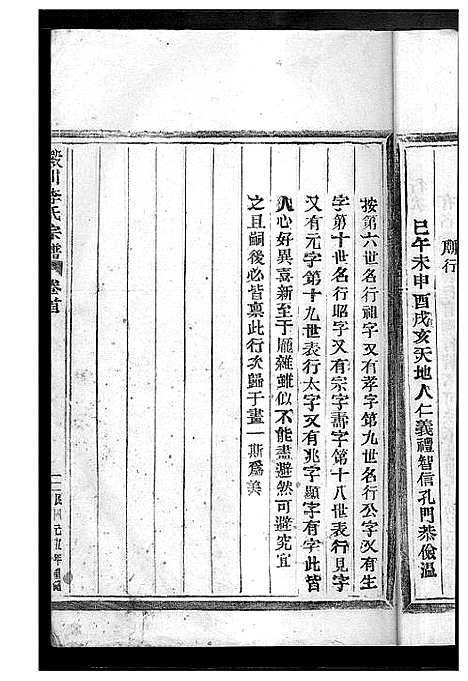 廟行
巳午未申酉戌亥天地人仁義禮智信孔門恭儉溫
按第六世名行祖字又有孝字第九世名行公字又有生
字第十世名行昭字又有宗字壽字第十八世表行見字
又有元字第十九世表行太字又有兆字顯字有字此皆
人心好異喜新至于龐雜雖似不能盡避然可避究宜
之且嗣後必皆稟此行次歸于畫一斯爲美
李氏宗譜 卷首
民國元年重鐫